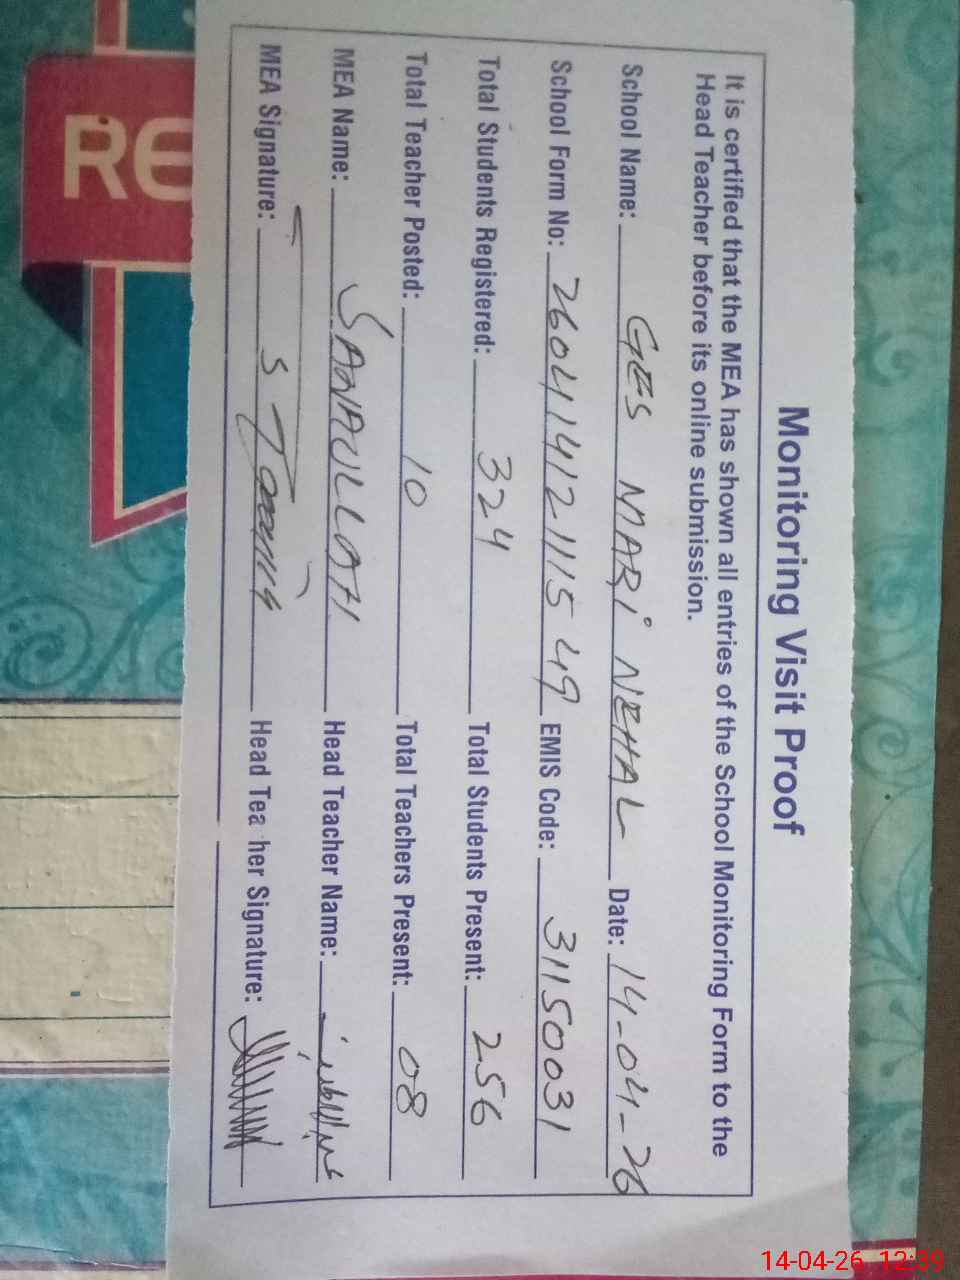 Monitoring Visit Proof
It is certified that the MEA has shown all entries of the School Monitoring Form to the
Head Teacher before its online submission.
School Name: GES MARI NEHAL Date: 14-04-26
School Form No: 26041412111549 EMIS Code: 31150031
Total Students Registered: 324 Total Students Present: 256
Total Teacher Posted: 10 Total Teachers Present: 08
MEA Name: SANAULLAH Head Teacher Name:
MEA Signature: Head Tea her Signature:
RE
14-04-26 12:39